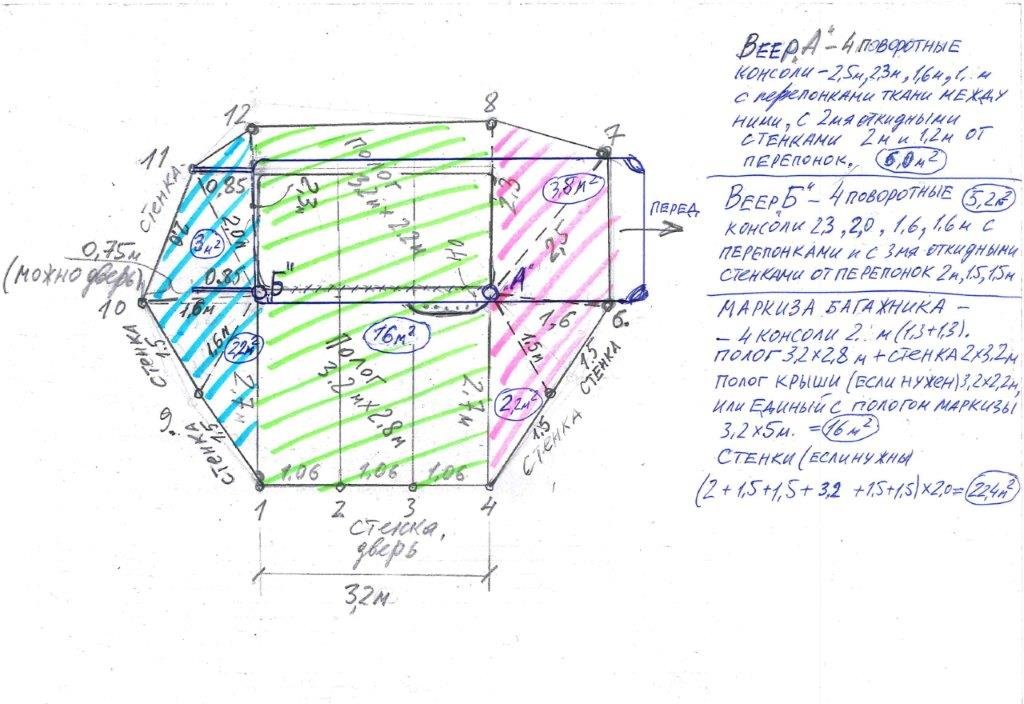 12
8
7
11
ПОЛОГ
3,2м х 2,2м
0.85
2,3
2.3
3,8м²
СТЕНКА
2,0
3м²
2,0
2,5
ПЕРЕД
0,75м
(МОЖНО ДВЕРЬ)
0.85
Б"
А"
10
1,6м
1,6
6.
16м²
СТЕНКА
1.5
1,6м
2,2м²
ПОЛОГ
3.2м х 2,8м
2.7м
2.7м
1,5м
2,2м²
1.5
СТЕНКА
9
СТЕНКА
1,5
1.5
СТЕНКА
1,06
1,06
1,06
1
2
3
4
СТЕНКА,
ДВЕРЬ
3,2м
ВЕЕР „А" – 4 ПОВОРОТНЫЕ
КОНСОЛИ – 2,5м, 2,3м, 1,6м, 1,. м
С ПЕРЕПОНКАМИ ТКАНИ МЕЖДУ
НИМИ, С 2МЯ ОТКИДНЫМИ
СТЕНКАМИ 2м и 1,2м ОТ
ПЕРЕПОНОК. 6,0м²
ВЕЕР Б" – 4 ПОВОРОТНЫЕ 5,2м²
КОНСОЛИ 2,3, 2,0, 1,6, 1,6м С
ПЕРЕПОНКАМИ И С 3МЯ ОТКИДНЫМИ
СТЕНКАМИ ОТ ПЕРЕПОНОК 2м, 1,5, 1,5м
МАРКИЗА БАГАЖНИКА –
– 4 КОНСОЛИ 2.. м (1,3+1,3).
ПОЛОГ 3,2х2,8 м + СТЕНКА 2х3,2м
ПОЛОГ КРЫШИ (ЕСЛИ НУЖЕН) 3,2х2,2м,
ИЛИ ЕДИНЫЙ С ПОЛОГОМ МАРКИЗЫ
3,2х5м. = 16м²
СТЕНКИ (ЕСЛИ НУЖНЫ
(2 + 1,5 + 1,5 + 3,2 + 1,5 + 1,5) х 2,0 = 22,4м²